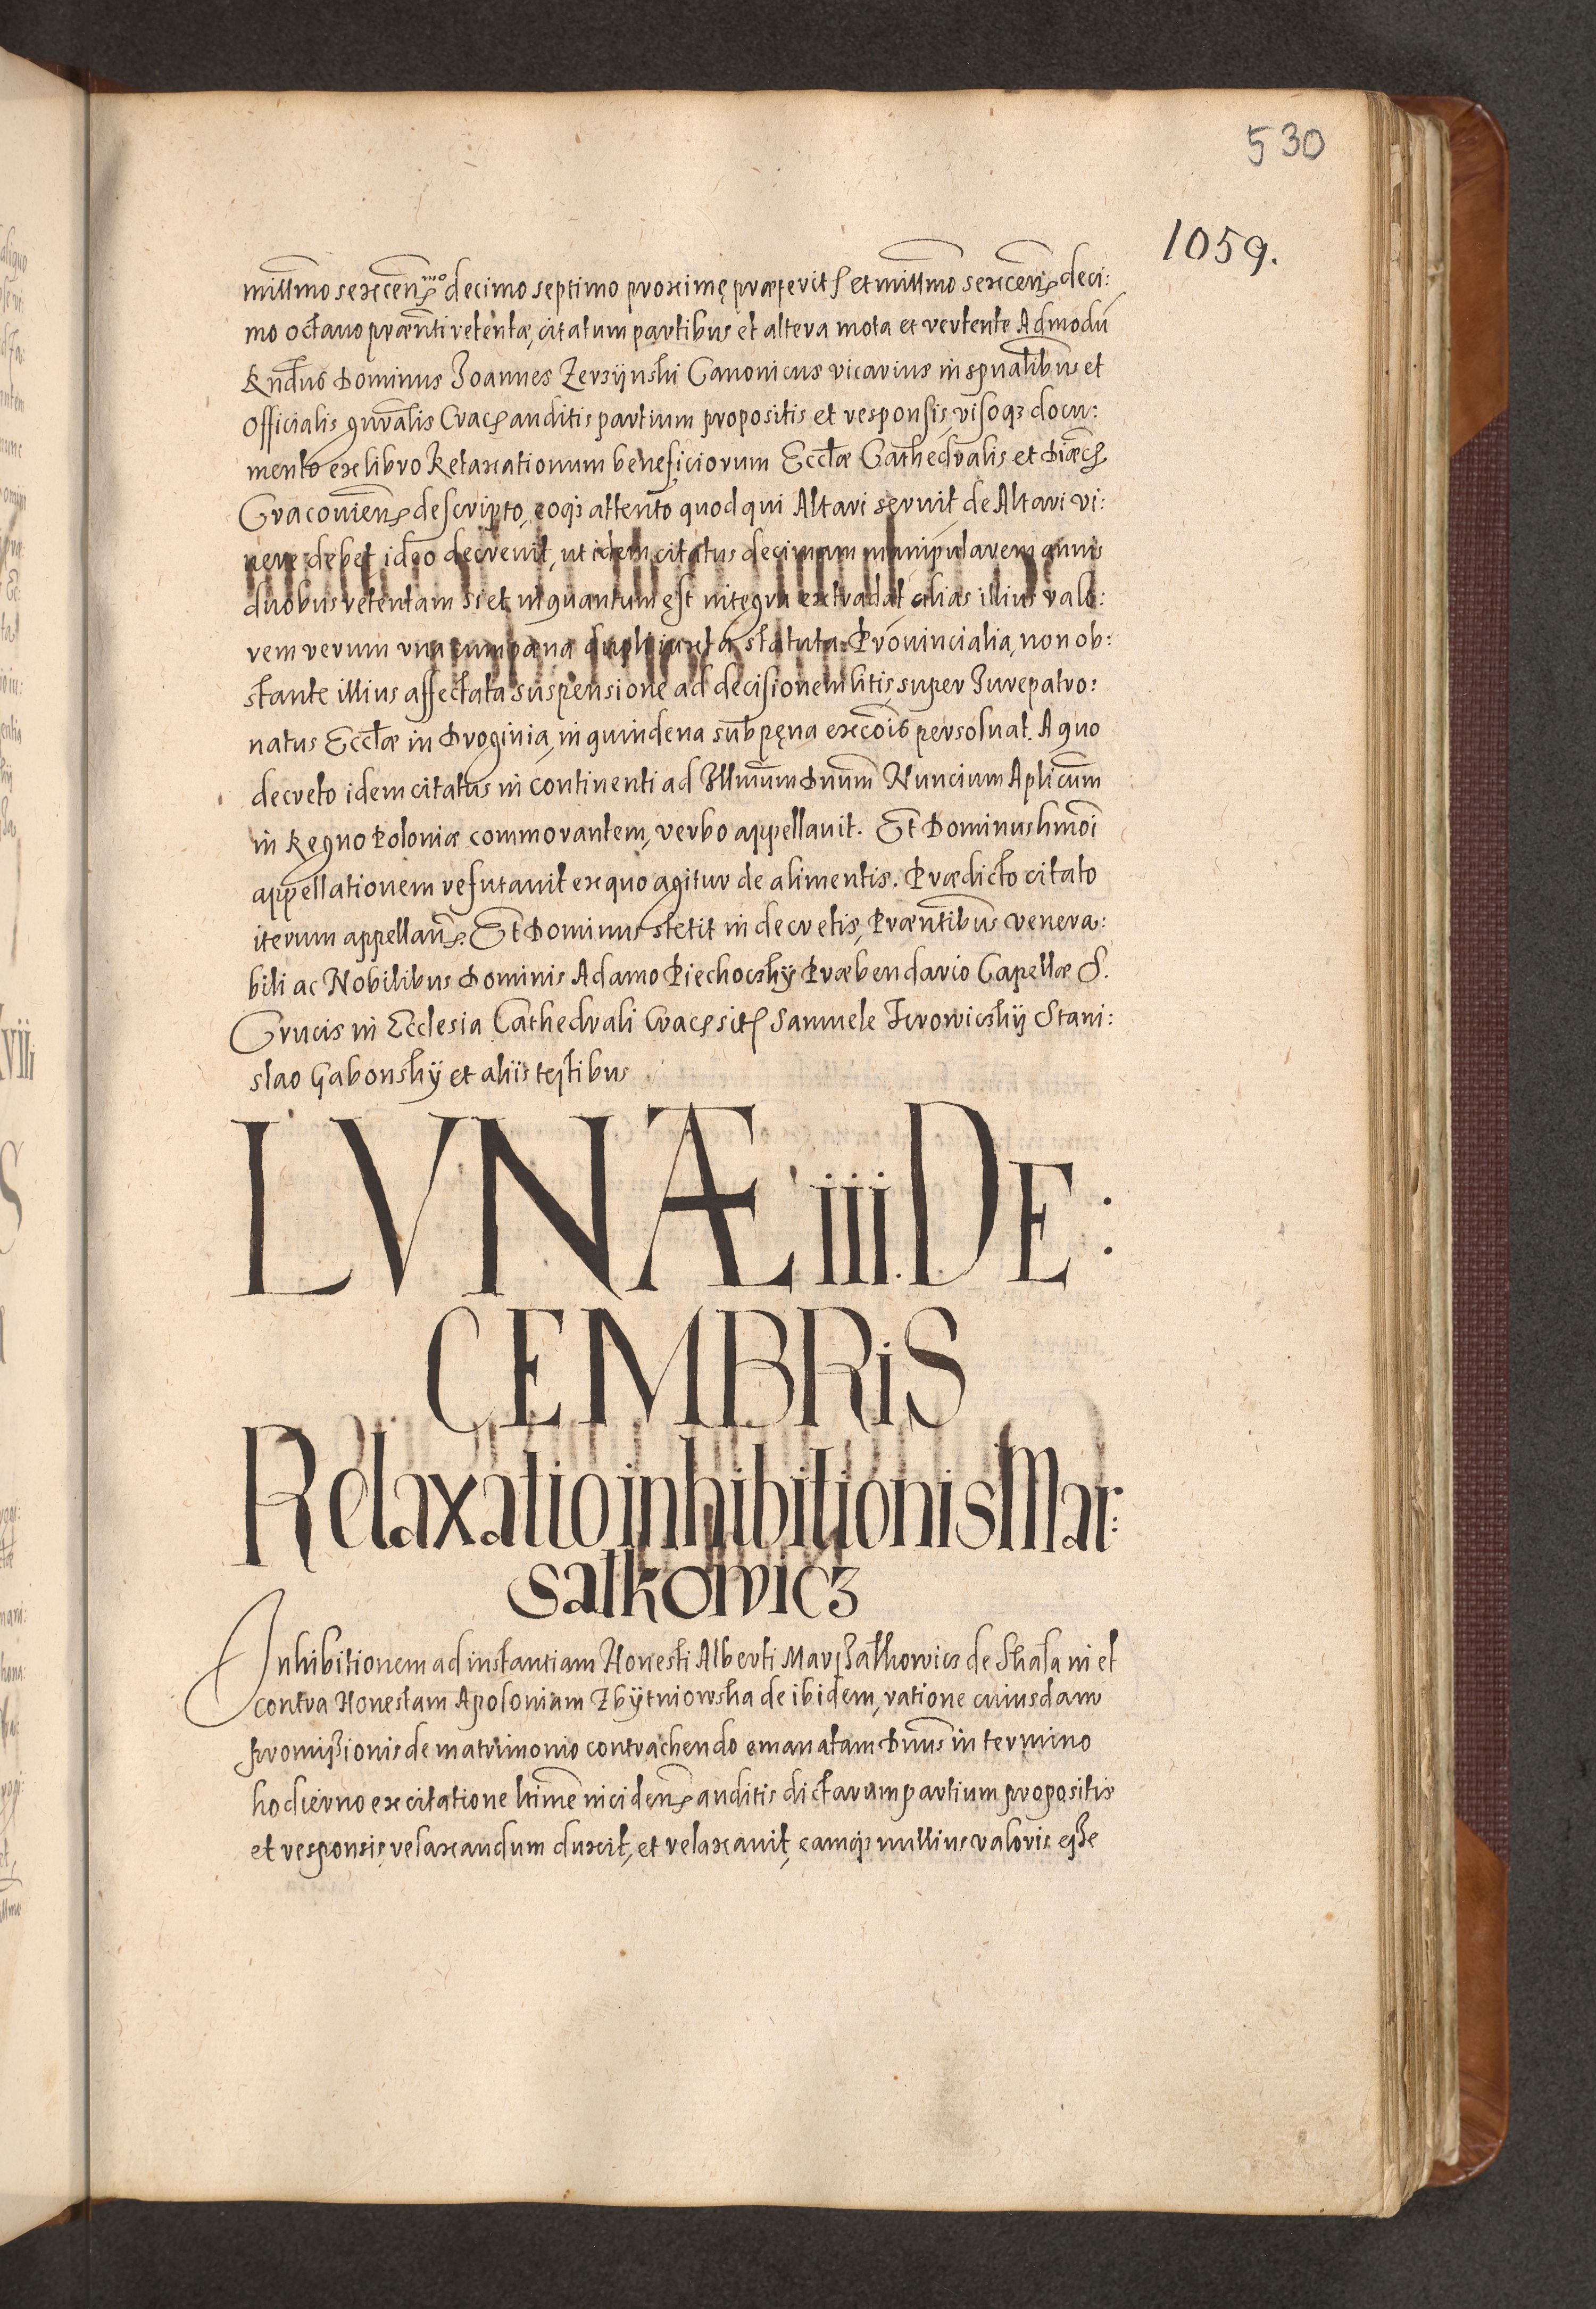 530
1059.
millmo sexcen. mo decimo septimo proximę præterit. et millmo sexcen. deci:
mo octauo prænti retentæ, citatum partibus et altera mota et vertente Admodū
Rndus Dominus Joannes Zerzijnski Canonicus vicarius in spualibus et
Officialis gnralis Crac. auditis partium propositis et responsis, visoq3 docu:
mento ex libro Retaxationum beneficiorum Ecclæ Cathedralis et Diæc.
Cracouien. descripto, eoq3 attento quod qui Altari seruit de Altari vi:
uere debet ideo decreuit, ut idem citatus decimam manipularem annis
duobus retentam si et in quantum ęst integra extradat alias illius valo:
rem verum vna cum pæna dupli iuxta statuta Prouincialia, non ob:
stante illius affectata suspensione ad decisionem litis super Jurepatro:
natus Ecclæ in Droginia, in quindena sub pęna excois persoluat. A quo
decreto idem citatus in continenti ad Illmum Dnum Nuncium Aplicum
in Regno Poloniæ commorantem, verbo appellauit. Et Dominus hmoi
appellationem refutauit ex quo agitur de alimentis. Prædicto citato
iterum appellan. Et Dominus stetit in decretis, Præntibus venera:
bili ac Nobilibus Dominis Adamo Piechocskÿ Præbendario Capellæ S.
Crucis in Ecclesia Cathedrali Crac. sit. Samuele Stani:
slao Gabonskÿ et alijs testibus
LVNÆ iii. DE:
CEMBRiS
Relaxatio inhibitionis Mar:
salkowicz
Inhibitionem ad instantiam Honesti Alberti Marßalkowicz de Skala in et
contra Honestam Apoloniam Zbÿtniowska de ibidem, ratione cuiusdam
promißionis de matrimonio contrachendo emanatam Dnus in termino
hodierno ex citatione ltime inciden. auditis dictarum partium propositis
et responsis, relaxandum duxit, et relaxauit, eamq3 nullius valoris eße